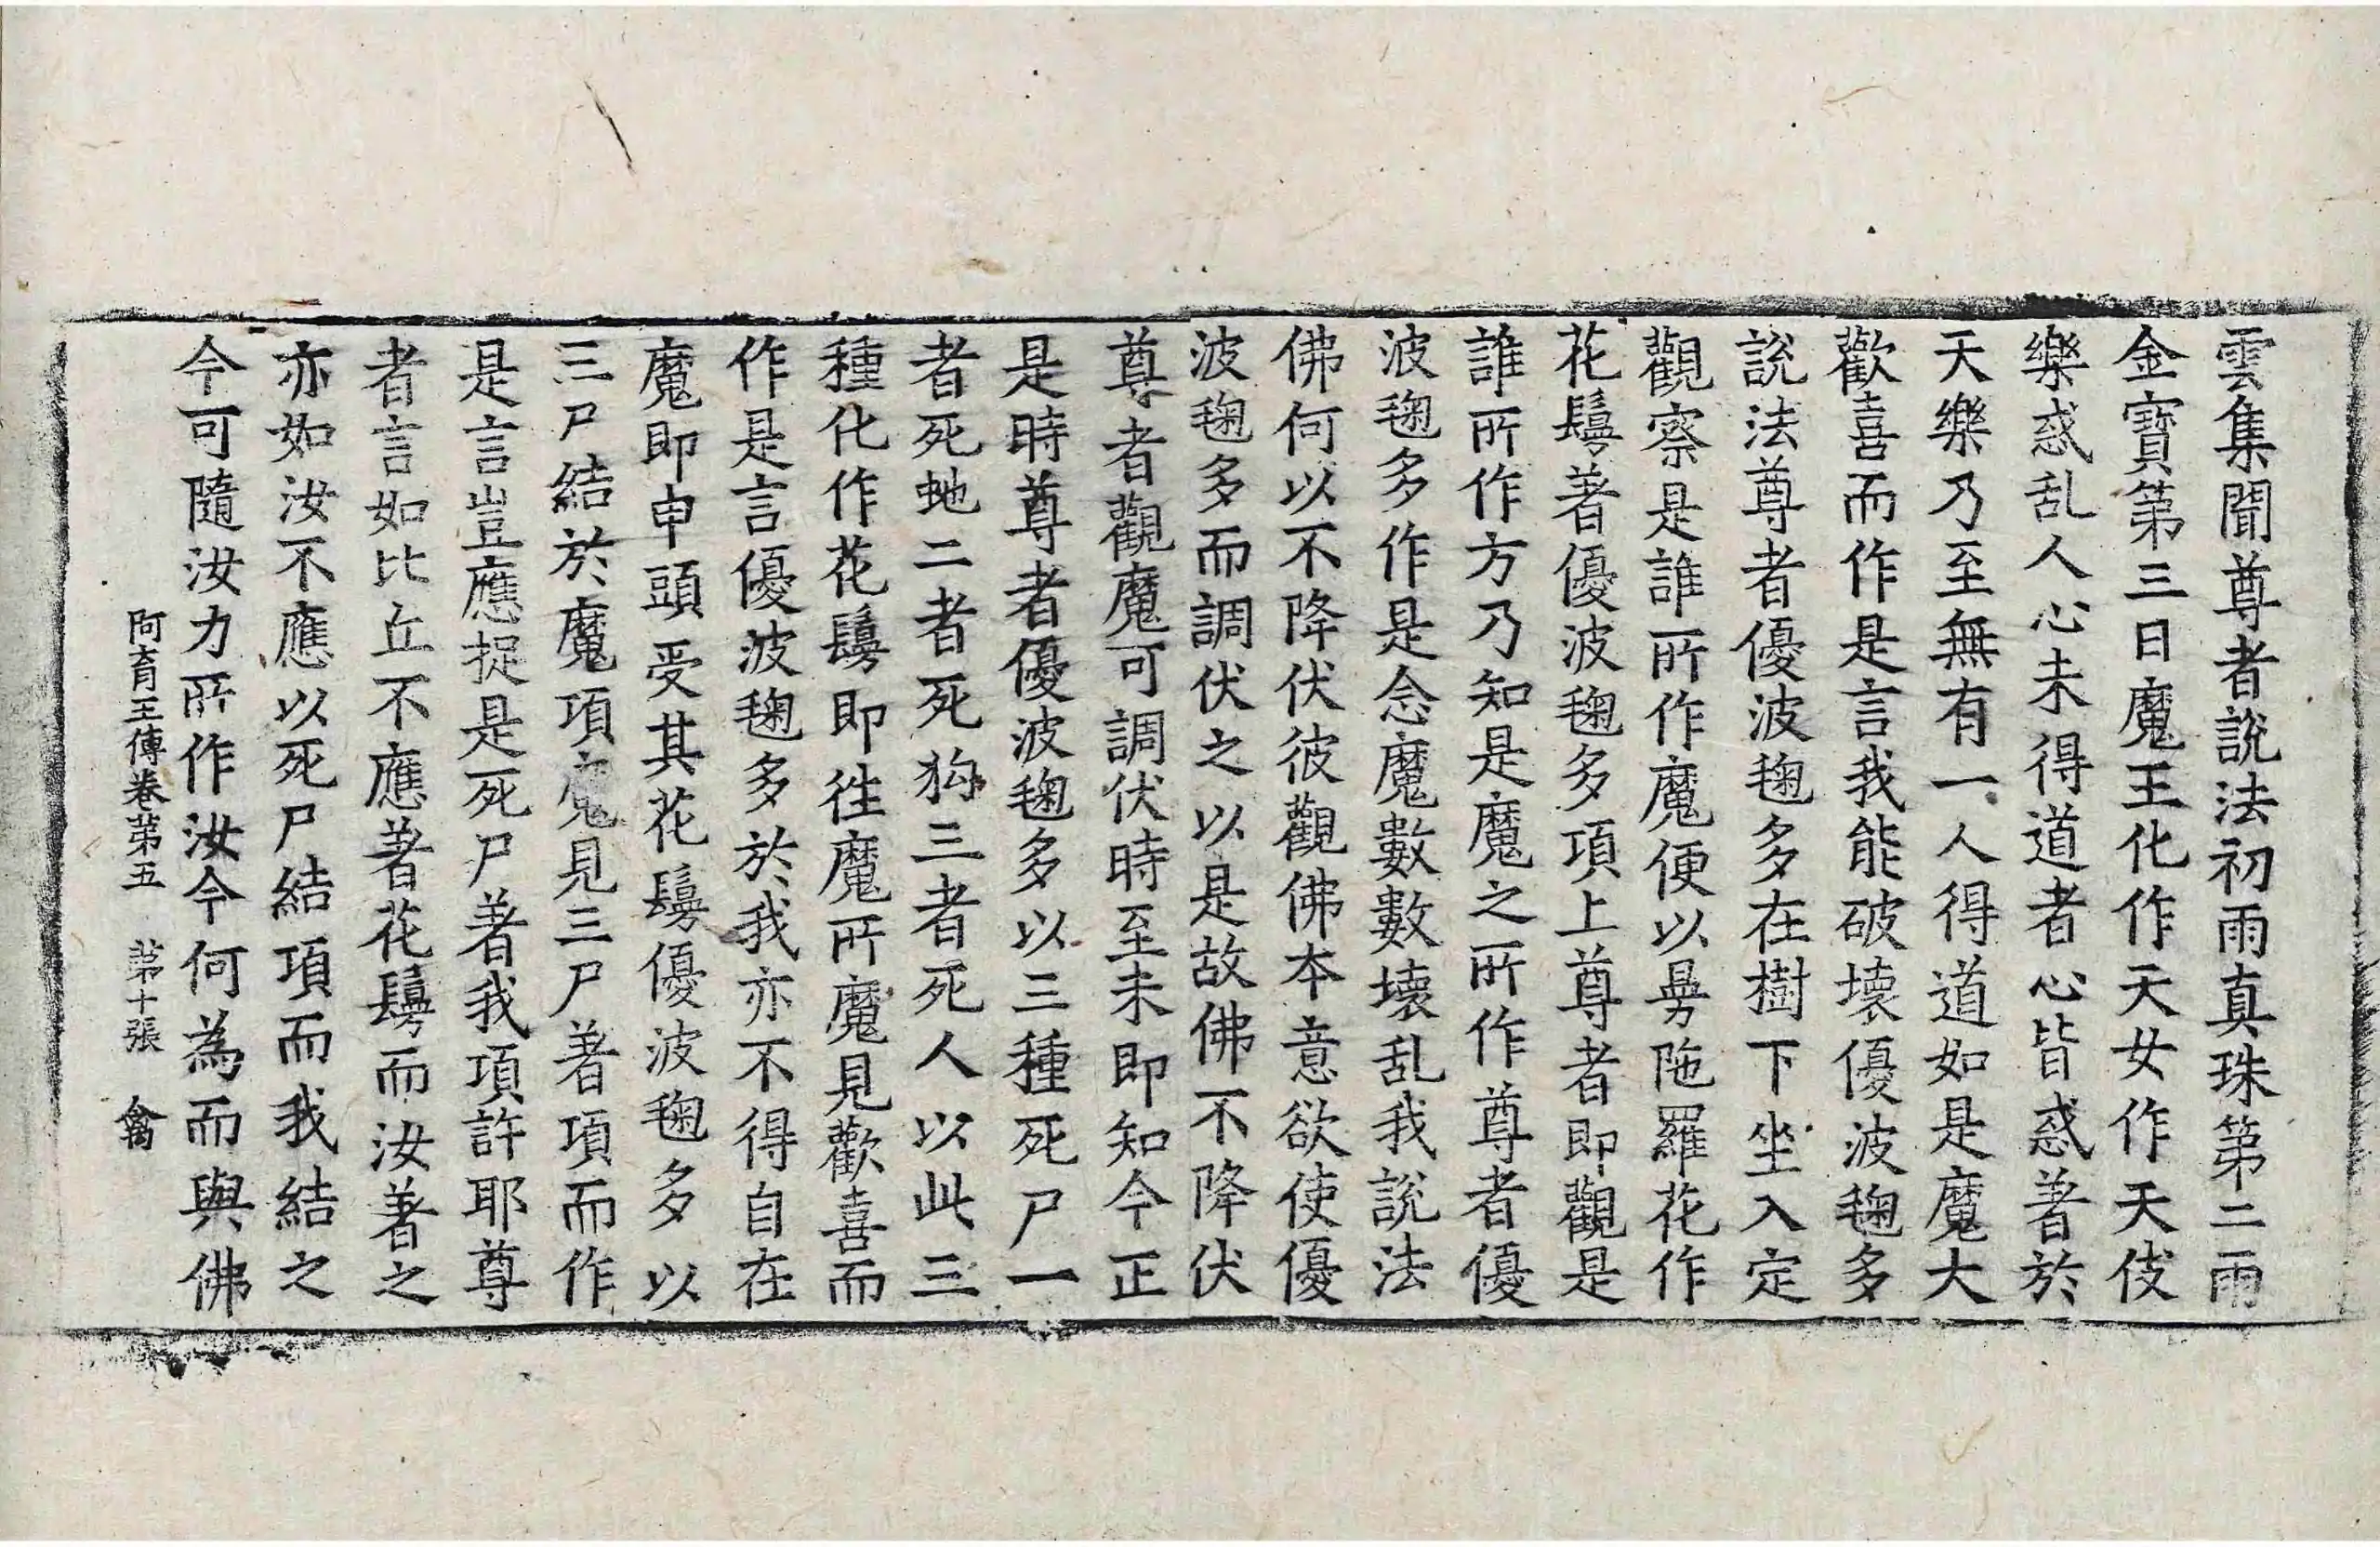 雲集聞尊者說法初雨真珠第二雨
金寶第三日魔王化作天女作天伎
樂惑乱人心未得道者心皆惑著於
天樂乃至無有一人得道如是魔大
歡喜而作是言我能破壞優波毱多
說法尊者優波毱多在樹下坐入定
觀察是誰所作魔便以曼陁羅花作
花鬘著優波毱多項上尊者即觀是
誰所作方乃知是魔之所作尊者優
波毱多作是念魔數數壞乱我說法
佛何以不降伏彼觀佛本意欲使優
波毱多而調伏之以是故佛不降伏
尊者觀魔可調伏時至未即知今正
是時尊者優波毱多以三種死尸一
者死虵二者死狗三者死人以此三
種化作花鬘即往魔所魔見歡喜而
作是言優波毱多於我亦不得自在
魔即申頭受其花鬘優波毱多以
三尸結於魔項魔見三尸著項而作
是言豈應捉是死尸著我項許耶尊
者言如比丘不應著花鬘而汝著之
亦如汝不應以死尸結項而我結之
今可隨汝力所作汝今何為而與佛
阿育王傳卷第五 第十張 禽